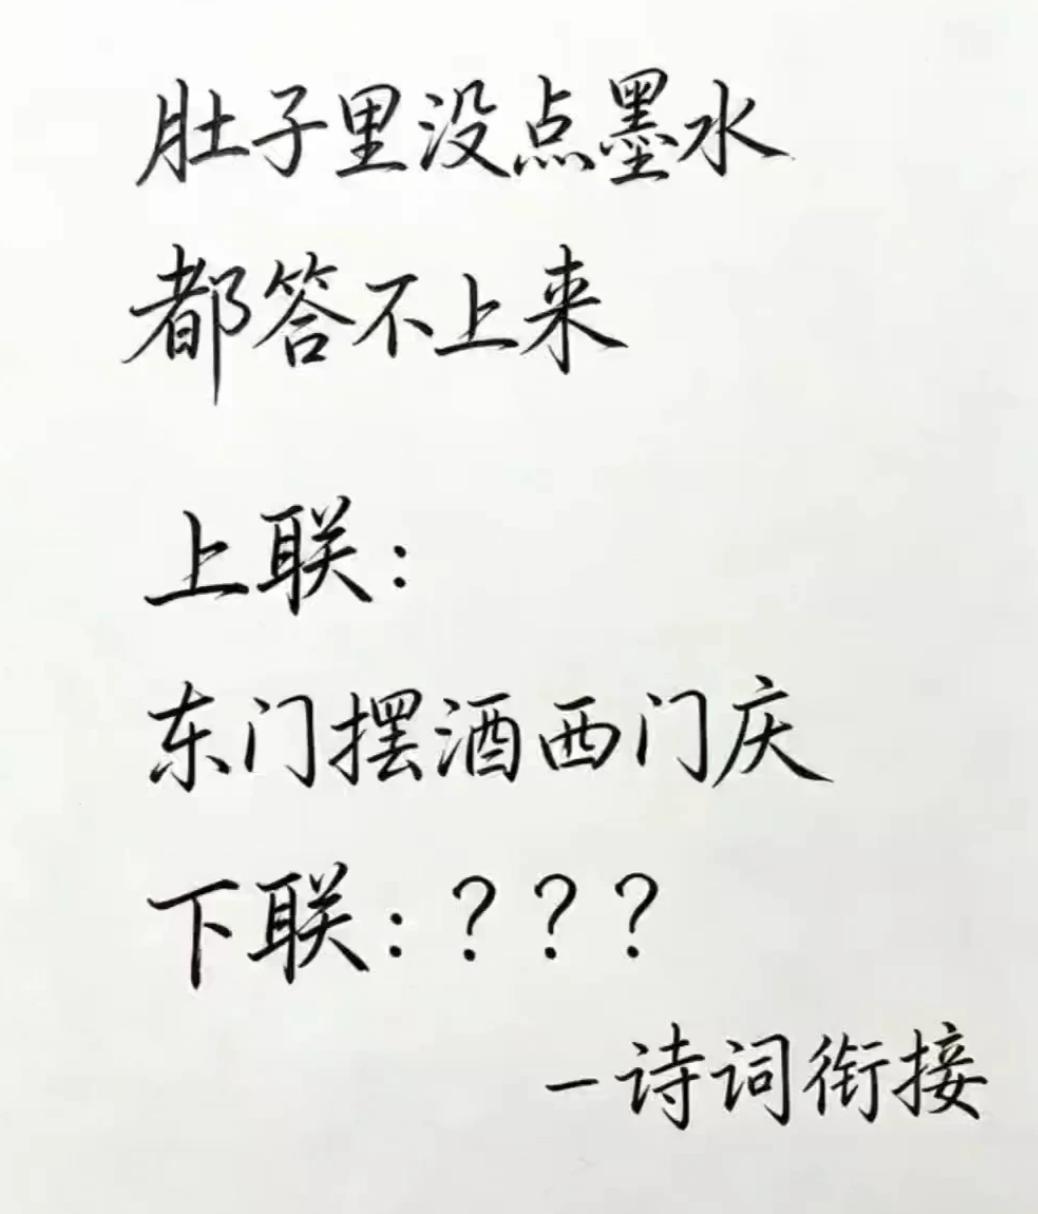 肚子里没点墨水
都答不上来
上联：
东门摆酒西门庆
下联：？？？
一诗词衔接